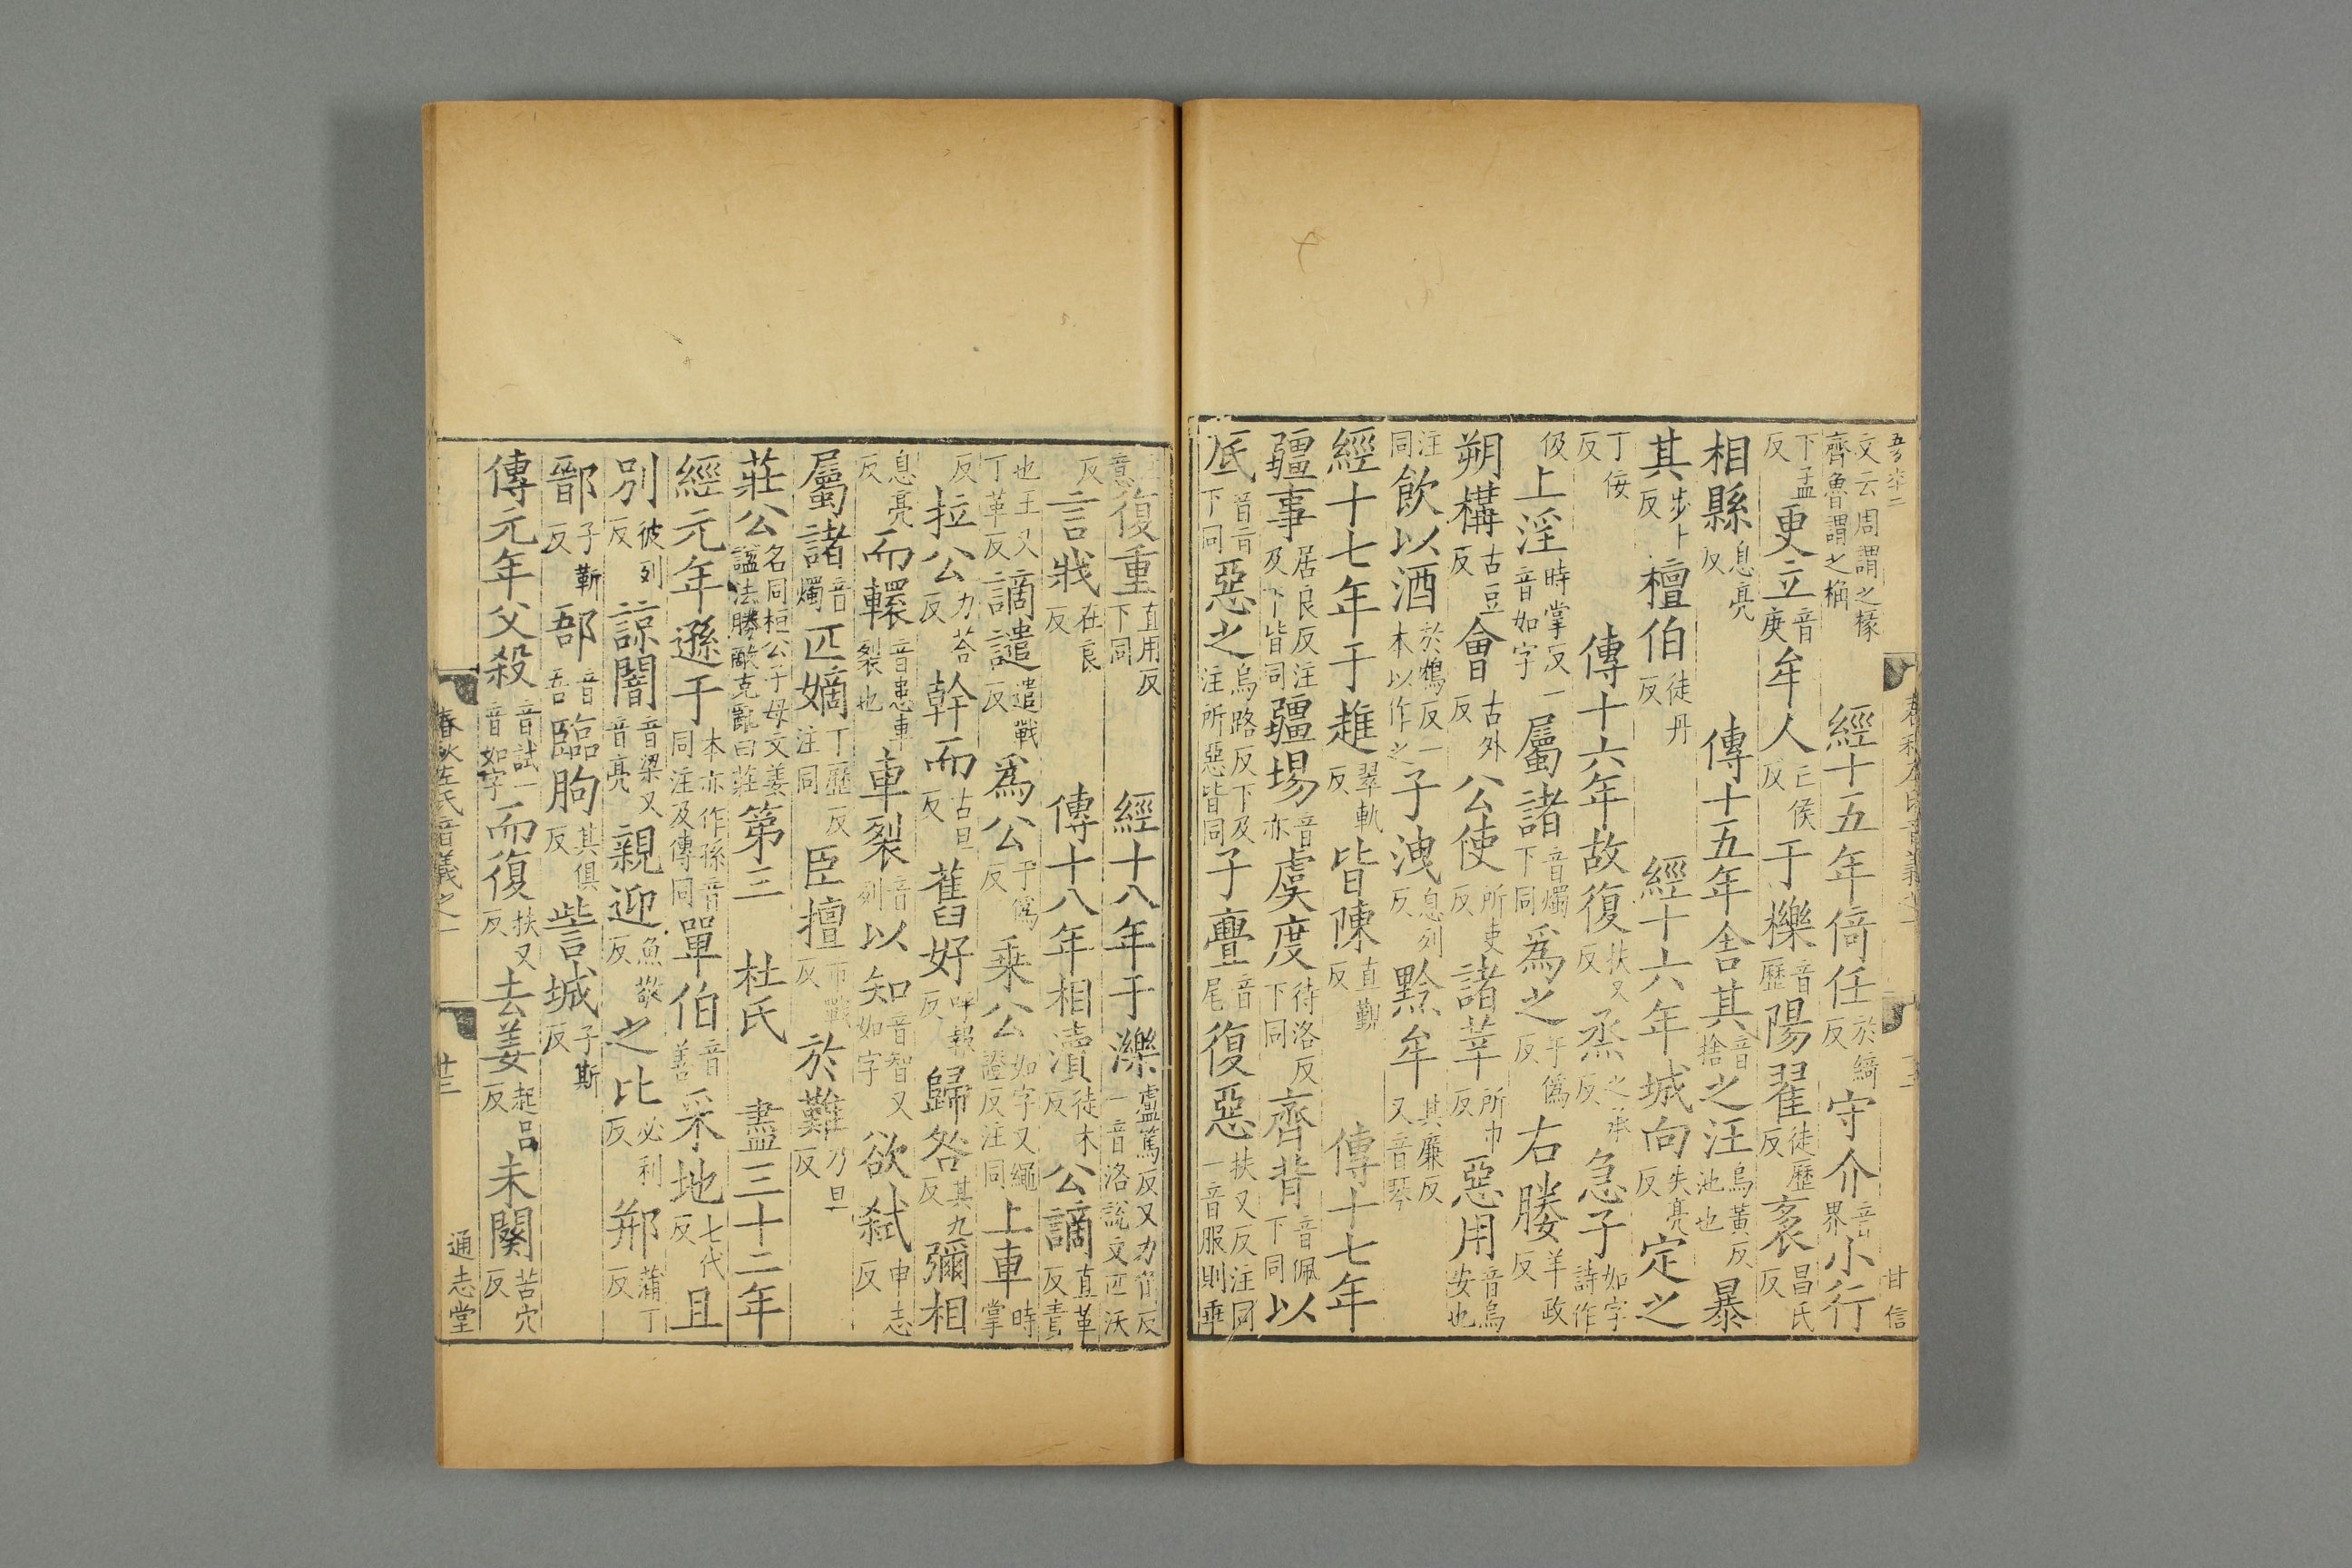 文云周謂之椽齊魯謂之桷 經十五年倚任於綺反守介音界小行
下孟反更立音庚牟人亡侯反于櫟音歷陽翟徒歷反袤昌氏反
相縣息亮反 傳十五年舍其音捨之汪烏黃反池也暴
其步卜反檀伯徒丹反 經十六年城向失亮反定之
丁佞反 傳十六年故復扶又反烝之承反急子如字詩作
伋上淫時掌反一音如字屬諸音燭下同爲之于僞反右媵羊政反
朔構古豆反會古外反公使所吏反諸莘所巾反惡用音烏安也
注同飲以酒於鴆反一本以作之子洩息列反黔牟其廉反又音琴
經十七年于趡翠軌反皆陳直覲反 傳十七年
疆事居良反注及下皆同疆埸音亦虞度待洛反下同齊背音佩下同以
底音旨下同惡之烏路反下及注所惡皆同子亹音尾復惡扶又反注同一音服則乖
意復重直用反下同 經十八年于濼盧篤反又力角反一音洛說文匹沃
反言戕在良反 傳十八年相瀆徒木反公謫直革反責
也王又丁革反謫譴遣戰反爲公于僞反乘公如字又繩證反注同上車時掌
反拉公力荅反幹而古旦反舊好呼報反歸咎其九反彌相
息亮反而轘音患車裂也車裂音列以知音智又如字欲弑申志反
屬諸音燭匹嫡丁歷反注同臣擅市戰反於難乃旦反
莊公名同桓公子母文姜謚法勝敵克亂曰莊第三 杜氏 盡三十二年
經元年遜于本亦作孫音同注及傳同單伯音善采地七代反且
別彼列反諒闇音梁又音亮親迎魚敬反之比必利反郱蒲丁反
鄑子斯反郚音吾臨朐其俱反訾城子斯反
傳元年父殺音試一音如字而復扶又反去姜起呂反未闋苦穴反
春秋左氏音義之一
廿三
通志堂